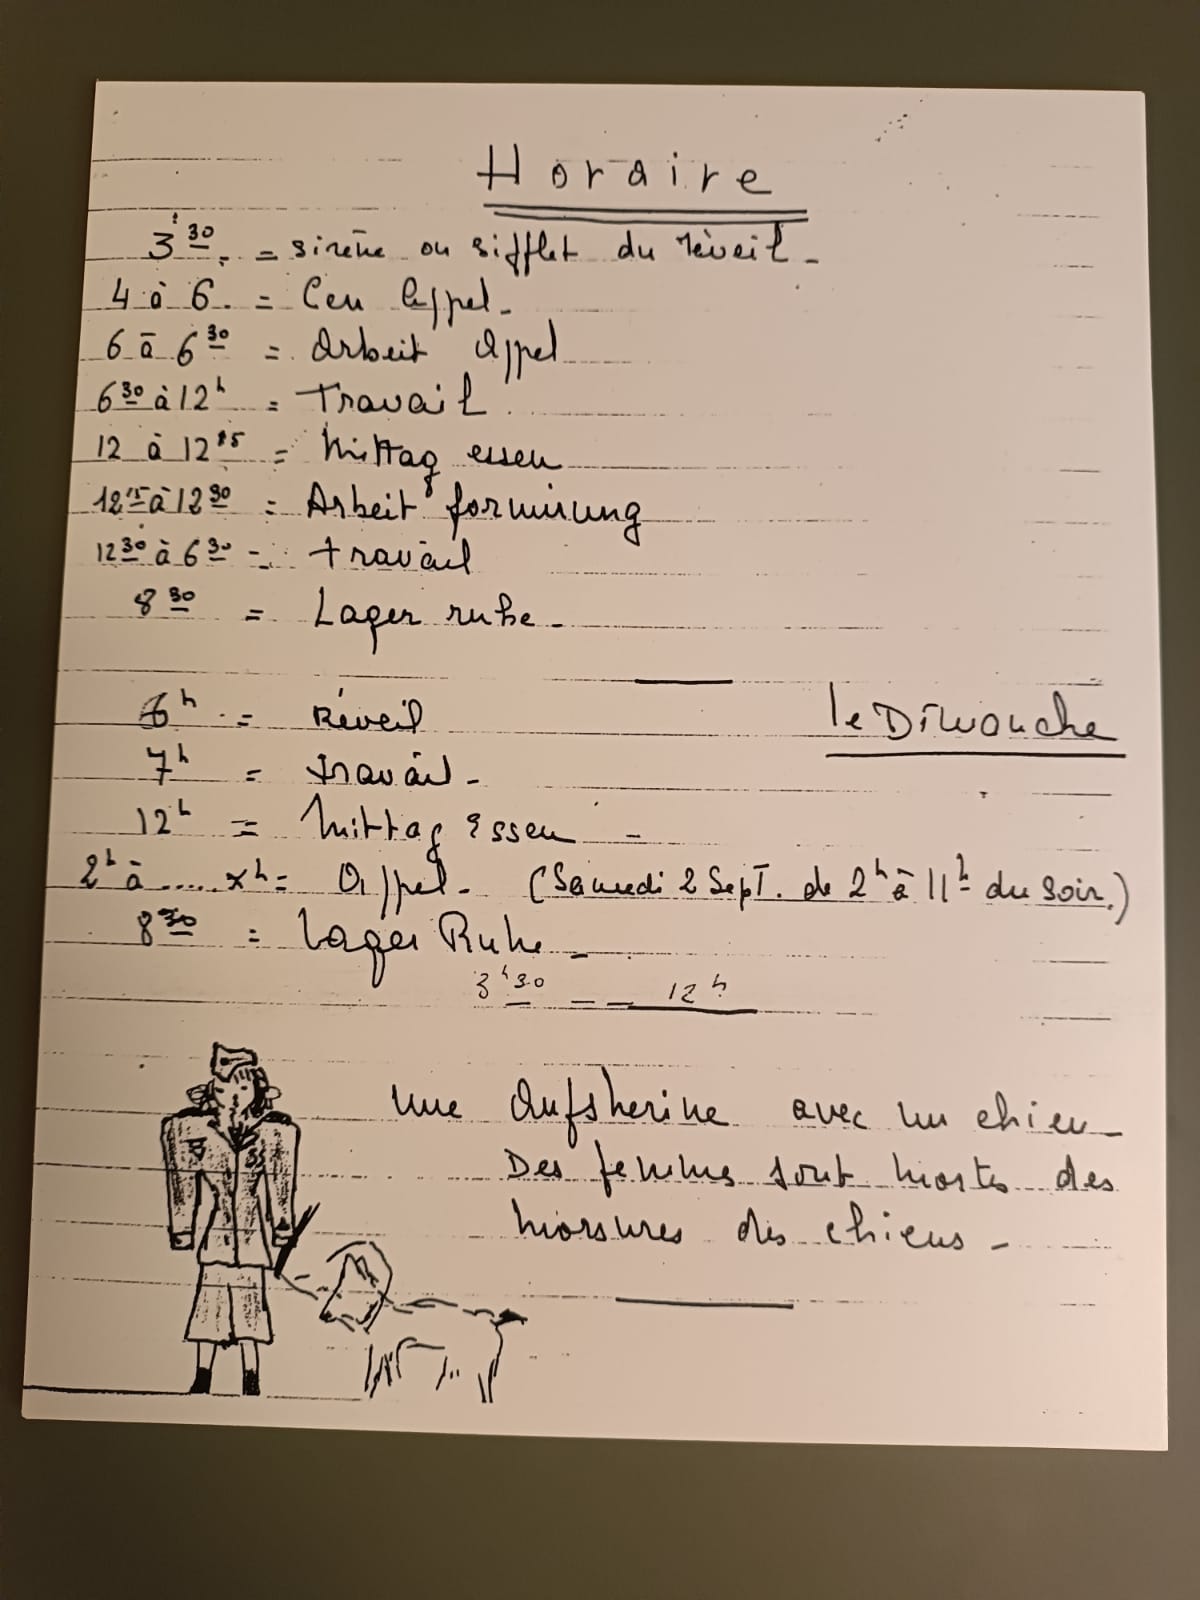 Horaire
3 30. = sirène ou sifflet du réveil.
4 à 6. = Ceu Appel.
6 à 6 30 = Arbeit Appel
6 30 à 12 h = Travail
12 à 12 15 = Mittag essen
12 15 à 12 30 = Arbeit formirung
12 30 à 6 30 = travail
8 30 = Lager ruhe.
le Dimanche
6 h = Réveil
7 h = travail.
12 h = Mittag Essen
2 h à ..... x h = Appel. (Samedi 2 Sept. de 2 h à 11 h du soir.)
8 30 = Lager Ruhe.
3 h 30 — — 12 h
Une Aufsherine avec un chien
Des femmes sont mortes des
morsures des chiens.